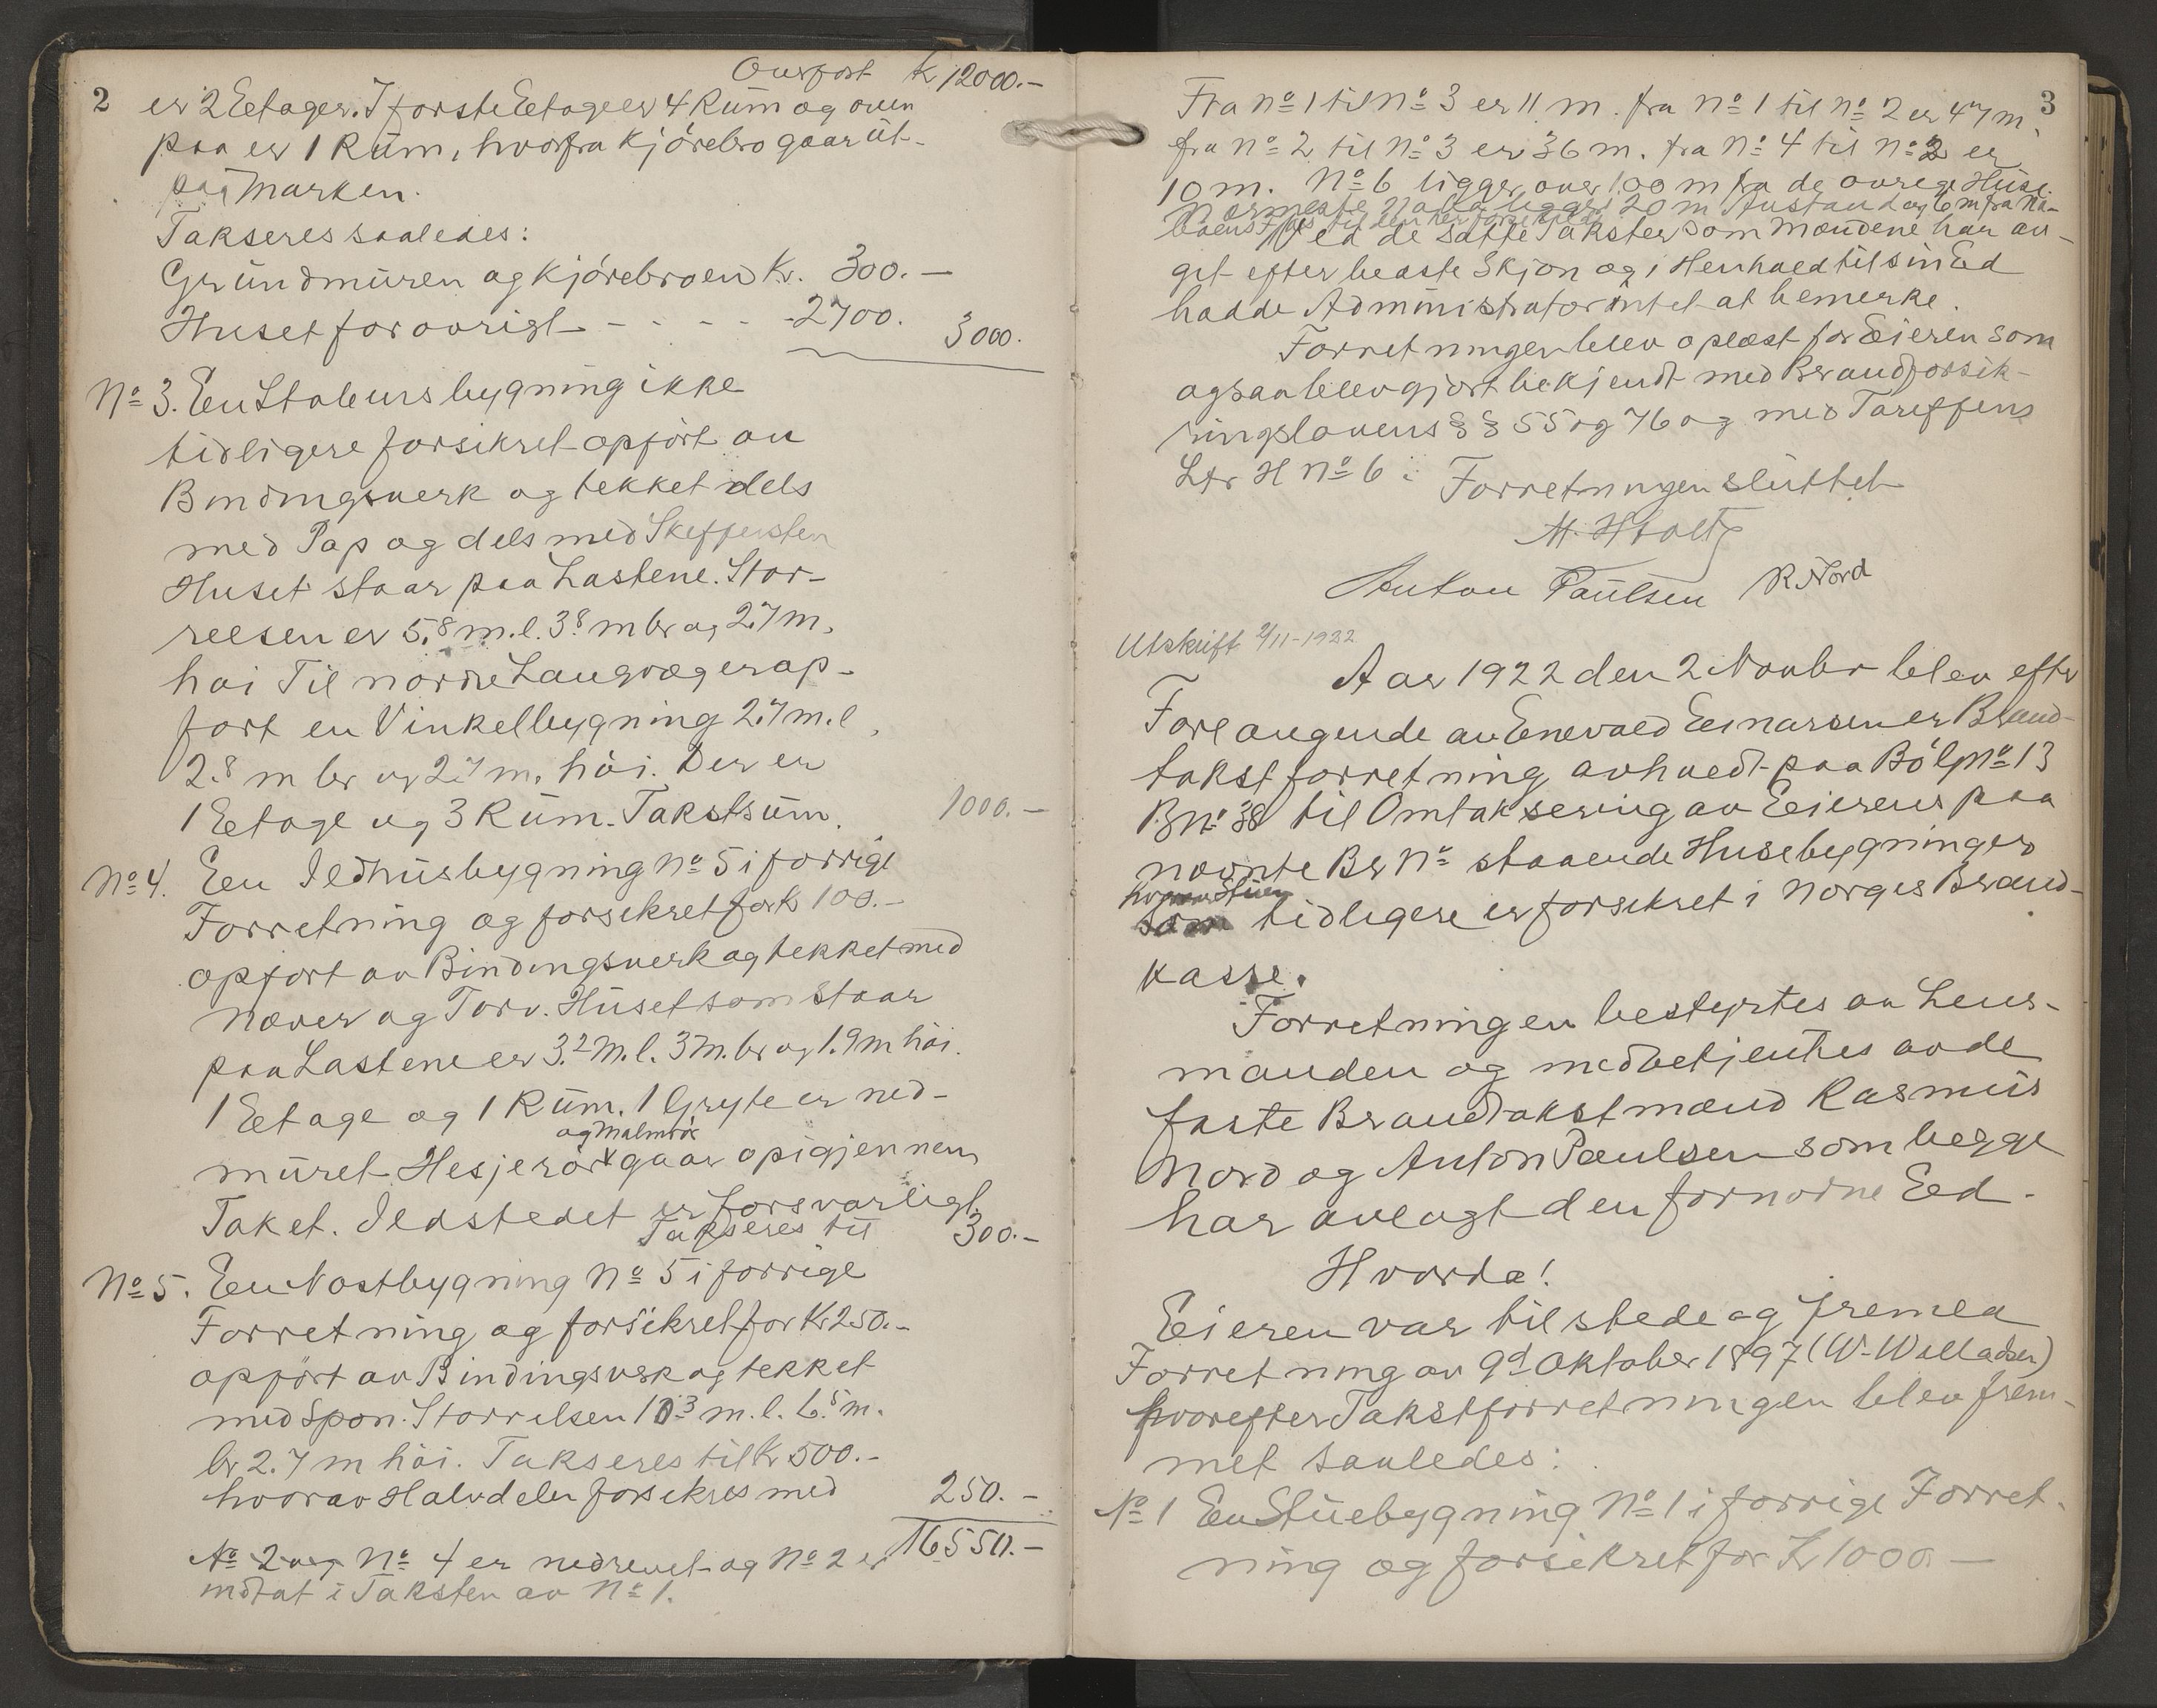 Overført Kr 12000.-
2
er 2 Eetager. I første Eetage er 4 Rum og oven
paa er 1 Rum, hvorfra Kjørebro gaar ut
paa Marken.
Takseres saaledes:
Grundmuren og Kjørebroen Kr. 300.-
Huset forøvrigt - - - - - 2700. 3000.
No 3. En Stabursbygning ikke
tidligere forsikret opført av
Bindingsverk og tekket dels
med Pap og dels med Skeffersten
Huset staar paa Lastene. Stør-
relsen er 5.8 m.l. 3.8 m br og 2.7 m.
høi Til nordre Langvæg er op-
ført en Vinkelbygning 2.7 m.l.
2.8 m br og 2.7 m. høi. Der er
1 Eetage og 3 Rum. Takstsum. 1000.-
No 4. Een Ildhusbygning No 5 i forrige
Forretning og forsikret for Kr 100.-
opført av Bindingsverk og tekket med
Næver og Torv. Huset som staar
paa Lastene er 3.2 m.l. 3 m. br og 1.9 m høi.
1 Eetage og 1 Rum. 1 Gryte er ned-
og Malmrør
muret Hesjerør gaar op igjennem
Taket. Ildstedet er forsvarligt.
Takseres til 300.-
No 5. Een Nostbygning No 5 i forrige
Forretning og forsikret for Kr 250.-
opført av Bindingsverk og tekket
med Spon. Størrelsen 10.3 m.l. 6.5 m.
br 2.7 m høi. Takseres til Kr 500.-
hvorav Halvdelen forsikres med 250.-
16550.-
No 2 og No 4 er nedrevet og No 2 er
indtat i Taksten av No 1.
3
Fra No 1 til No 3 er 11 m. fra No 1 til No 2 er 47 m,
fra No 2 til No 3 er 36 m. fra No 4 til No 2 er
10 m. No 6 ligger over 100 m fra de øvrige Huse.
Nærmeste Nabo ligger i 20 m Avstand og 6 m fra Na-
Ved de satte Takster som Mændene har av-
git efter bedste Skjøn og i Henhold til sin Ed
hadde Administrator intet at bemerke.
Forretningen blev oplæst for Eieren som
ogsaa blev gjort bekjendt med Brandforsik-
ringslovens §§ 55 og 76 og med Tariffens
Ltr H No 6. Forretningen sluttet
M. Hholtz
Anton Paulsen R. Nord
Utskrift 2/11-1922
Aar 1922 den 2 Novbr blev efter
Forlangende av Enevald Eenarsen er Brand-
takstforretning avholdt paa Bø Lp No 13
B No 38 til Omtaksering av Eierens paa
nævnte Br No staaende Husebygninger
som tidligere er forsikret i Norges Brand-
kasse.
Forretningen bestyrtes av Lens-
manden og medbetjentes av de
faste Brandtakstmænd Rasmus
Nord og Anton Paulsen som begge
har avlagt den fornødne Eed.
Hvorda!
Eieren var tilstede og fremla
Forretning av 9d Oktober 1897 (W. Walladsen)
hvorefter Takstforretningen blev frem-
met saaledes:
No 1 En Stuebygning No 1 i forrige Forret-
ning og forsikret for Kr 1000.-